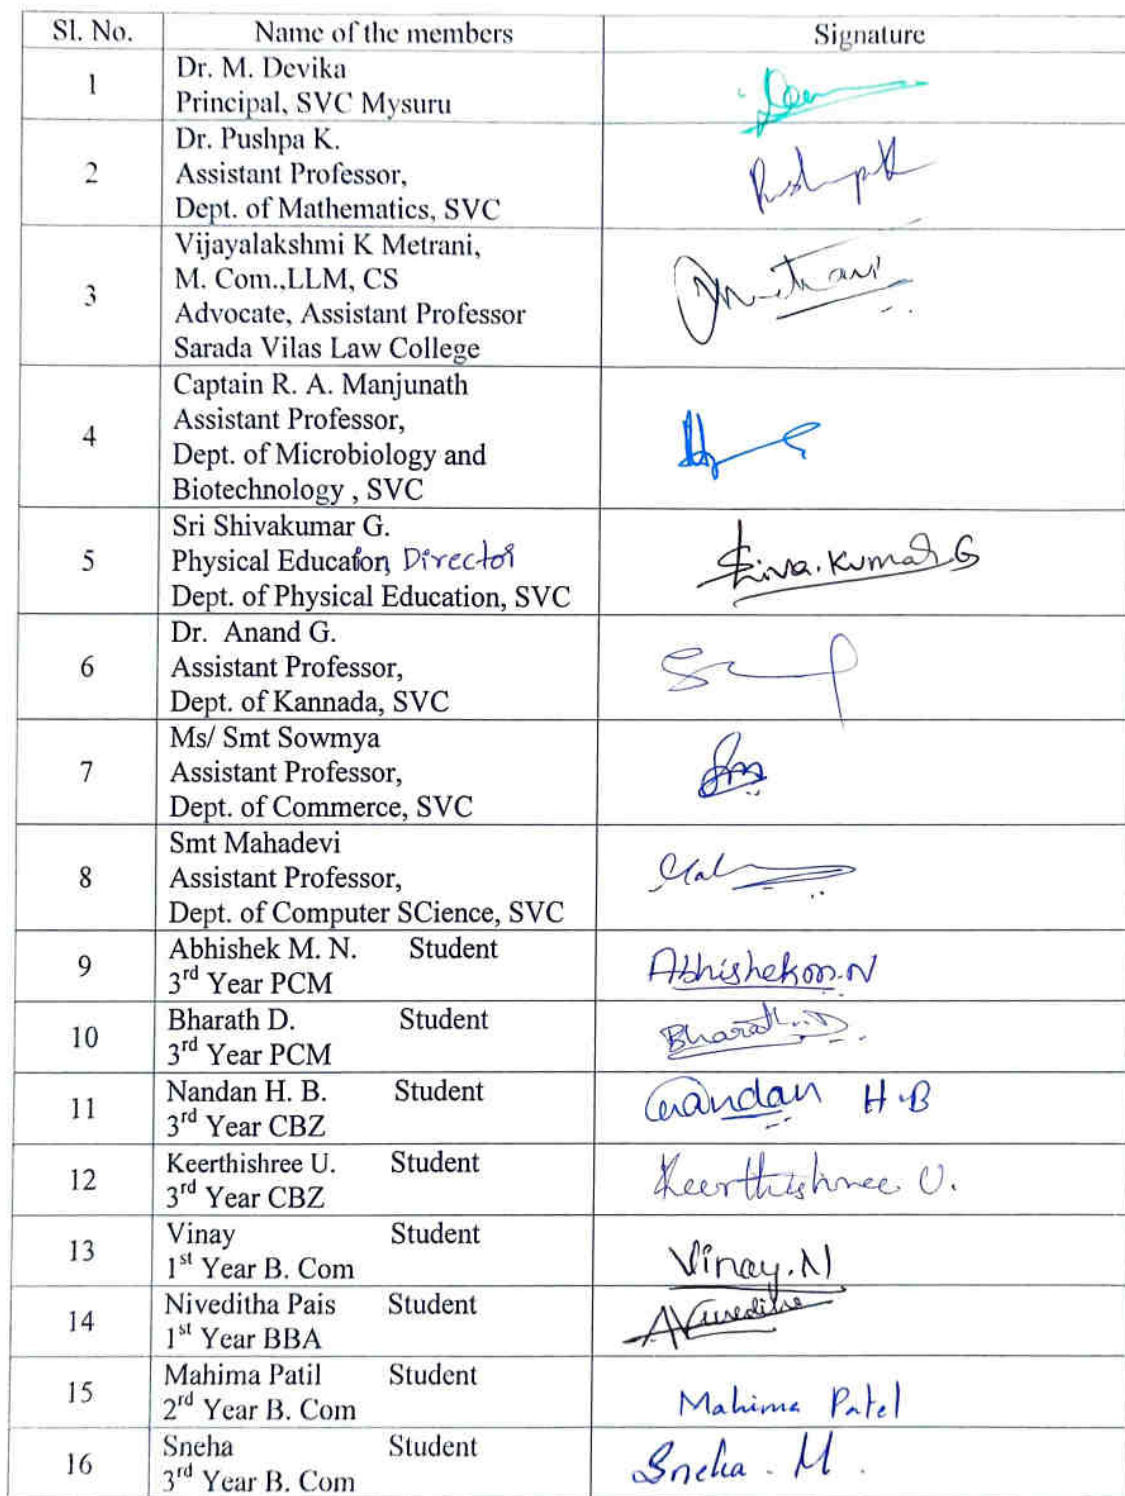 Sl. No. Name of the members Signature
1 Dr. M. Devika
Principal, SVC Mysuru
2 Dr. Pushpa K.
Assistant Professor,
Dept. of Mathematics, SVC
Pushpa K
3 Vijayalakshmi K Metrani,
M. Com.,LLM, CS
Advocate, Assistant Professor
Sarada Vilas Law College
Metrani
4 Captain R. A. Manjunath
Assistant Professor,
Dept. of Microbiology and
Biotechnology , SVC
5 Sri Shivakumar G.
Physical Education, Director
Dept. of Physical Education, SVC
Shiva.Kumar G
6 Dr. Anand G.
Assistant Professor,
Dept. of Kannada, SVC
7 Ms/ Smt Sowmya
Assistant Professor,
Dept. of Commerce, SVC
8 Smt Mahadevi
Assistant Professor,
Dept. of Computer SCience, SVC
9 Abhishek M. N. Student
3rd Year PCM
Abhishek m.N
10 Bharath D. Student
3rd Year PCM
Bharath.D.
11 Nandan H. B. Student
3rd Year CBZ
Nandan H.B
12 Keerthishree U. Student
3rd Year CBZ
Keerthishree U.
13 Vinay Student
1st Year B. Com
Vinay.N
14 Niveditha Pais Student
1st Year BBA
Niveditha
15 Mahima Patil Student
2rd Year B. Com
Mahima Patel
16 Sneha Student
3rd Year B. Com
Sneha . M .